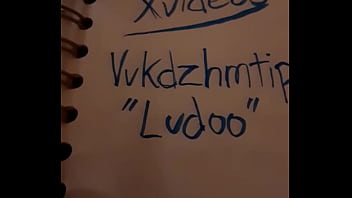 Xvideos
Vvkdzhmtip
"Ludoo"